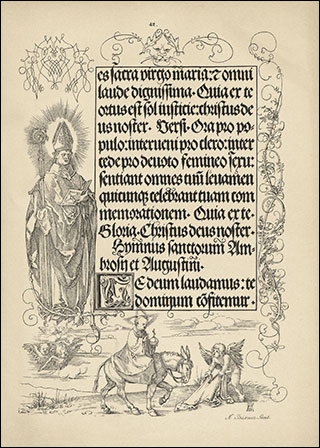 41.
es sacra virgo maria: et omni
laude dignissima. Quia ex te
ortus est sol iusticie: christus de
us noster. Versi. Ora pro po
pulo: interueni pro clero: inter
cede pro deuoto femineo sexu:
sentiant omnes tuū leuamen
quicunqz celebrant tuam com
memorationem. Quia ex te.
Gloria. Christus deus noster.
Hymnus sanctorum Am-
brosij et Augustini.
TE deum laudamus: te
dominum cōfitemur.